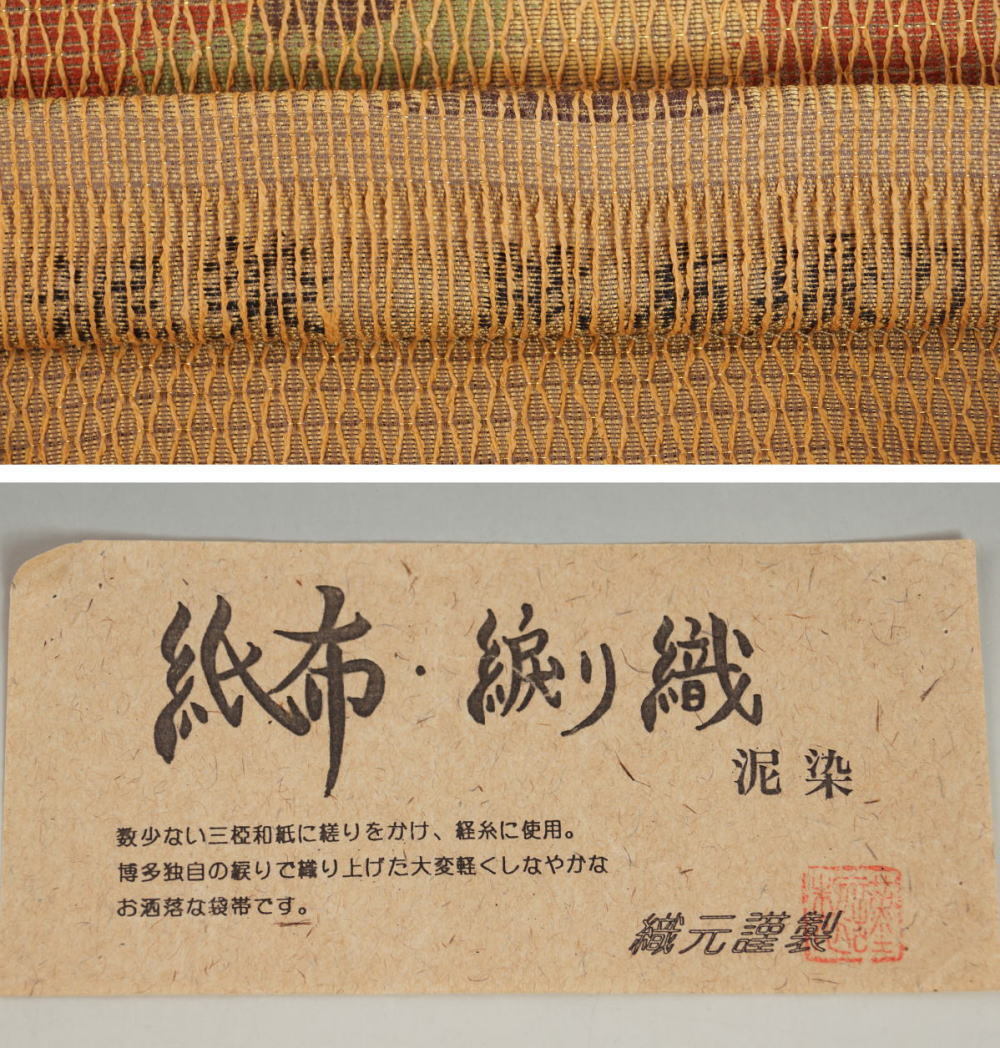 紙布・綟り織
泥染
数少ない三椏和紙に縒りをかけ、経糸に使用。
博多独自の綟りで織り上げた大変軽くしなやかな
お洒落な袋帯です。
織元謹製